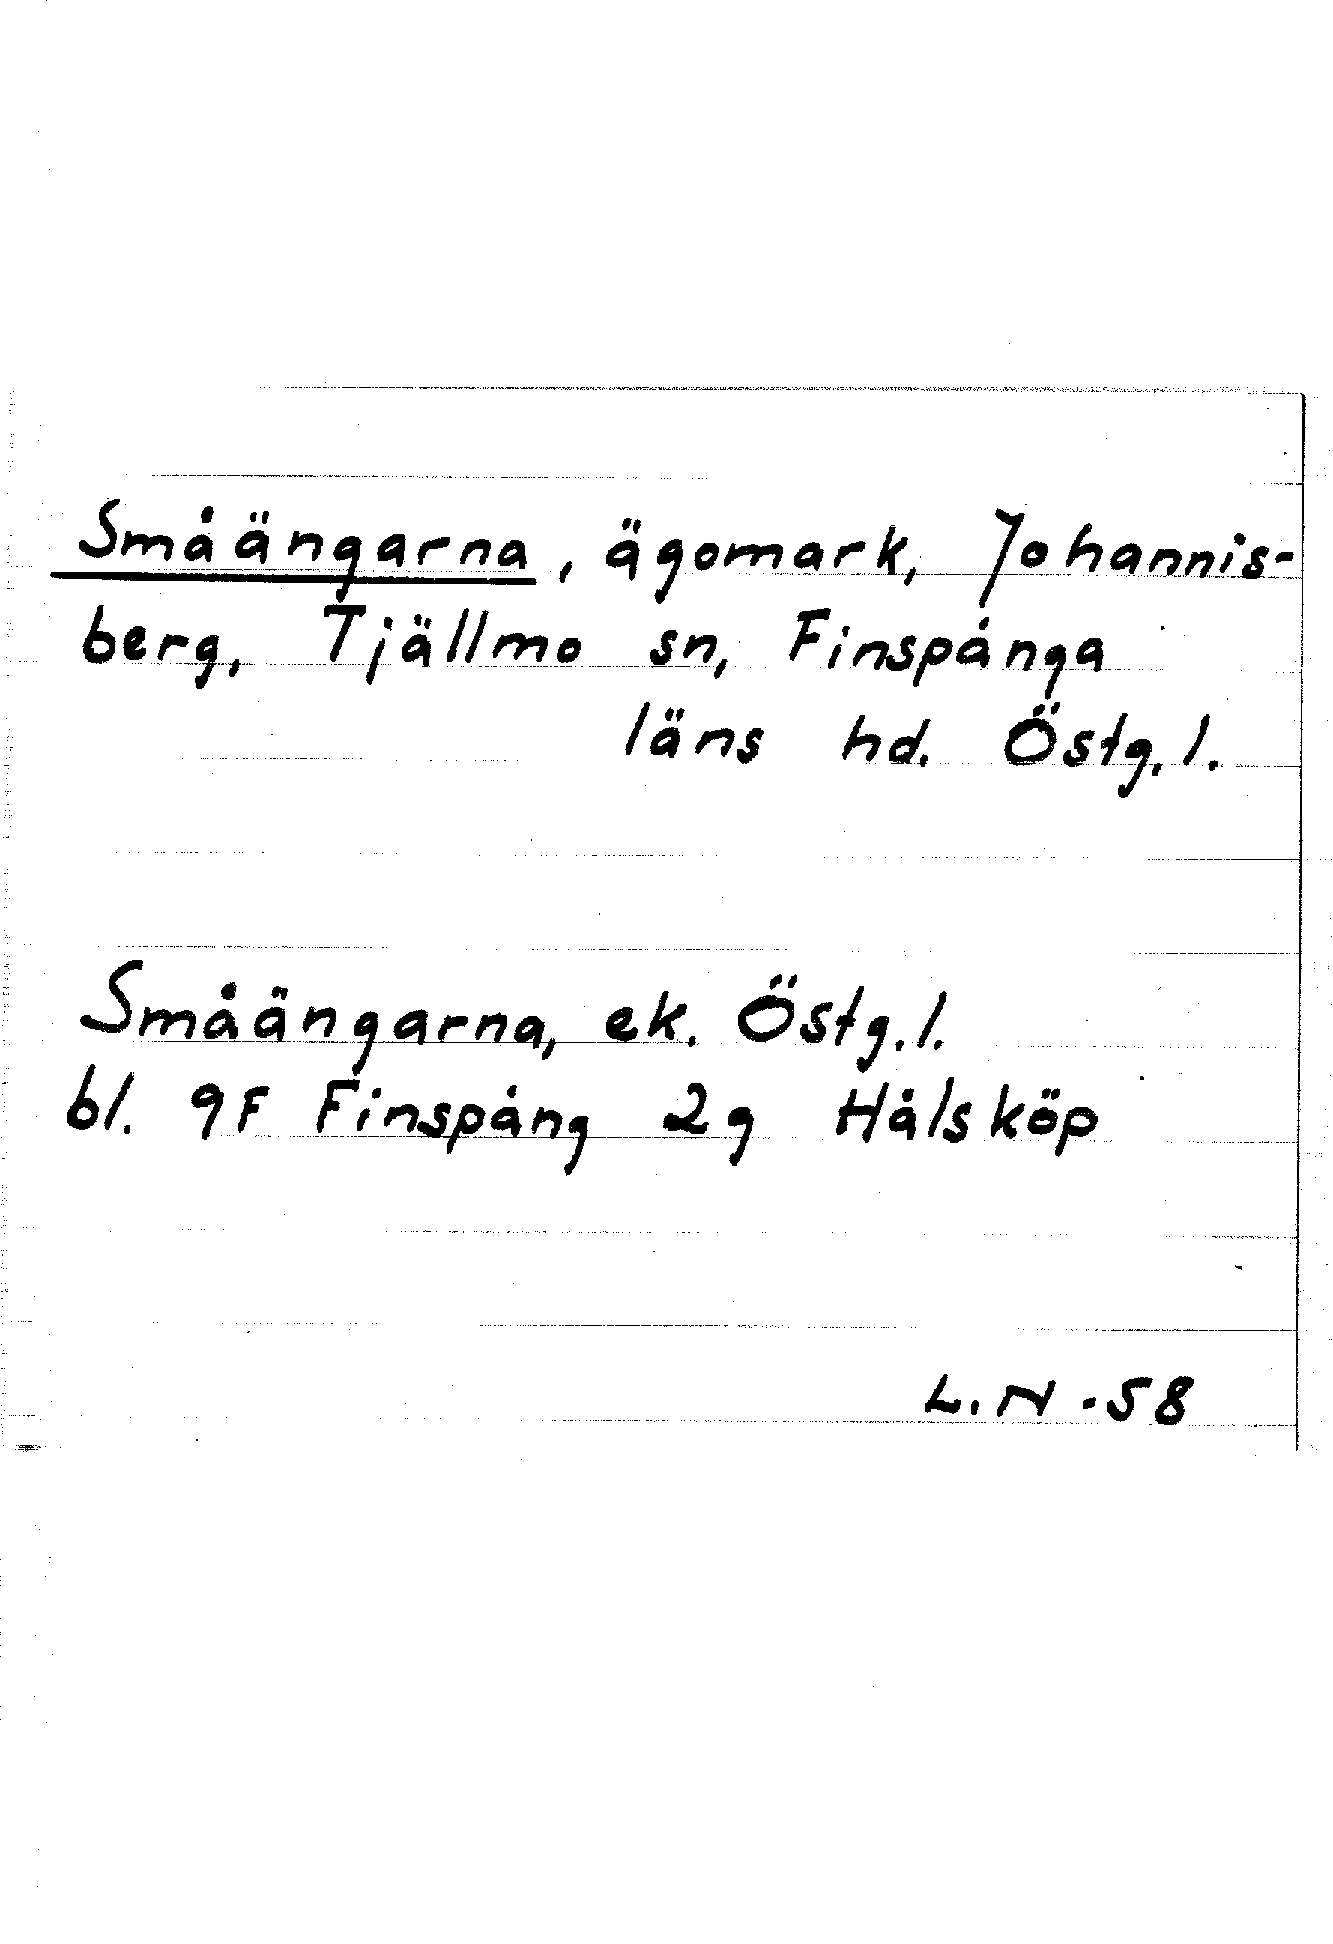 Småängarna, ägomark, Johannis-
berg, Tjällmo sn, Finspånga
läns hd. Östg. l.
Småängarna, ek. Östg. l.
bl. 9F Finspång 2g Hålsköp
L. N -58